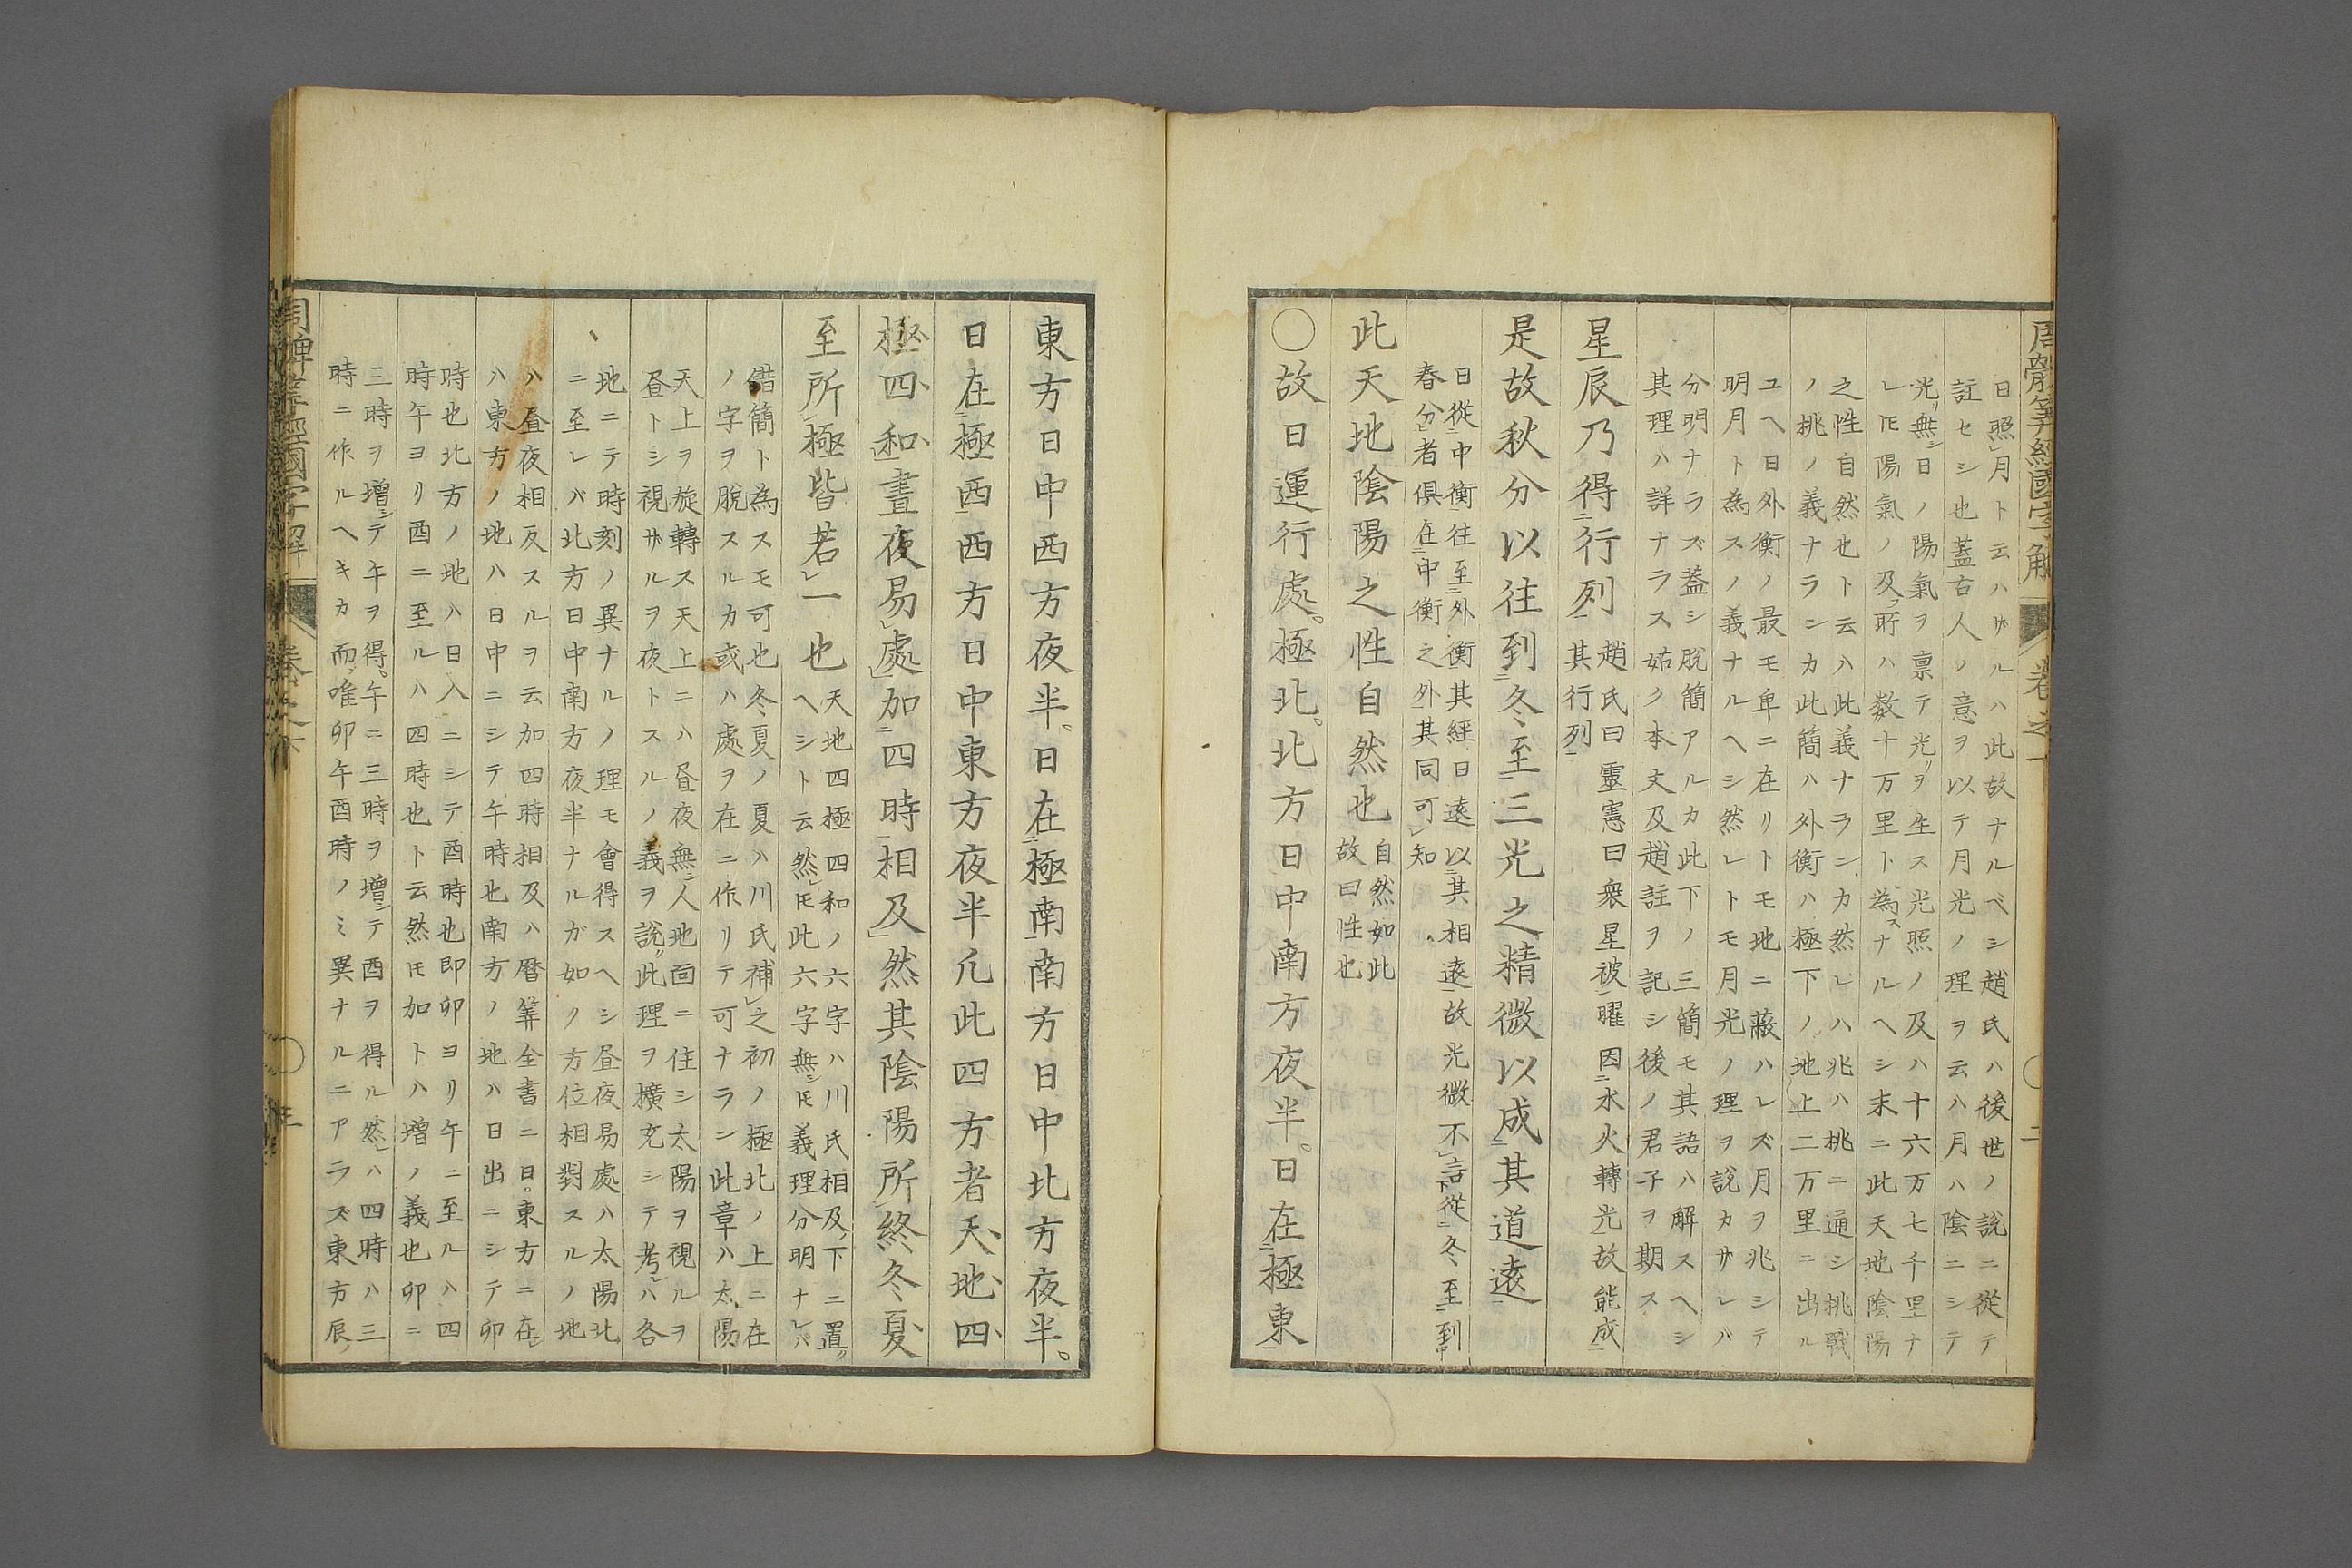 周髀筭經國字解 卷之下
日照月ト云ハサルハ此故ナルベシ趙氏ハ後世ノ説ニ從テ
註セシ也蓋古人ノ意ヲ以テ月光ノ理ヲ云ハ月ハ陰ニシテ
光無シ日ノ陽氣ヲ禀テ光ヲ生ス光照ノ及ハ十六万七千里ナ
レ𪜈陽氣ノ及フ所ハ数十万里ト為スナルヘシ末ニ此天地陰陽
之性自然也ト云ハ此義ナラニカ然レハ兆ハ挑ニ通シ挑戰
ノ挑ノ義ナラシカ此簡ハ外衡ハ極下ノ地上二万里ニ出ル
ユヘ日外衡ノ最モ卑ニ在リトモ地ニ蔽ハレズ月ヲ兆シテ
明月ト為スノ義ナルヘシ然レトモ月光ノ理ヲ説カザレバ
分明ナラズ蓋シ脱簡アルカ此下ノ三簡モ其語ハ解スヘシ
其理ハ詳ナラス姑ク本文及趙註ヲ記シ後ノ君子ヲ期ス
星辰乃得行列
趙氏曰靈憲曰衆星被曜因水火轉光故能成
其行列
是故秋分以往到冬至三光之精微以成其道遠
日從中衡往至外衡其經日遠以其相遠故光微不言從冬至到
春分者俱在中衡之外其同可知
此天地陰陽之性自然也
自然如此
故曰性也
○故日運行處極北北方日中南方夜半日在極東
東方日中西方夜半日在極南南方日中北方夜半
日在極西西方日中東方夜半凡此四方者天地四
極四和晝夜易處加四時相及然其陰陽所終冬夏
至所極皆若一也
天地四極四和ノ六字ハ川氏相及ノ下ニ置リ
ヘシト云然𪜈此六字無シ𪜈義理分明ナレバ
錯簡ト為スモ可也冬夏ノ夏ハ川氏補之初ノ極北ノ上ニ在
ノ字ヲ脱スルカ或ハ處ヲ在ニ作リテ可ナラン此章ハ太陽
天上ヲ旋轉ス天上ニハ昼夜無シ人地面ニ住シ太陽ヲ視ルヲ
昼トシ視ザルヲ夜トスルノ義ヲ説此理ヲ擴充シテ考レハ各
地ニテ時刻ノ異ナルノ理モ會得スヘシ昼夜易處ハ太陽北
ニ至レバ北方日中南方夜半ナルガ如ク方位相對スルノ地
ハ昼夜相反スルヲ云加四時相及ハ暦筭全書ニ曰東方ニ在
ハ東方ノ地ハ日中ニシテ午時也南方ノ地ハ日出ニシテ卯
時也北方ノ地ハ日入ニシテ酉時也即卯ヨリ午ニ至ルハ四
時午ヨリ酉ニ至ルハ四時也ト云然𪜈加トハ増ノ義也卯ニ
三時ヲ増シテ午ヲ得午ニ三時ヲ増シテ酉ヲ得ル然レハ四時ハ三
時ニ作ルヘキカ而唯卯午酉時ノミ異ナルニアラズ東方辰
周髀筭經國字解 卷之下 三